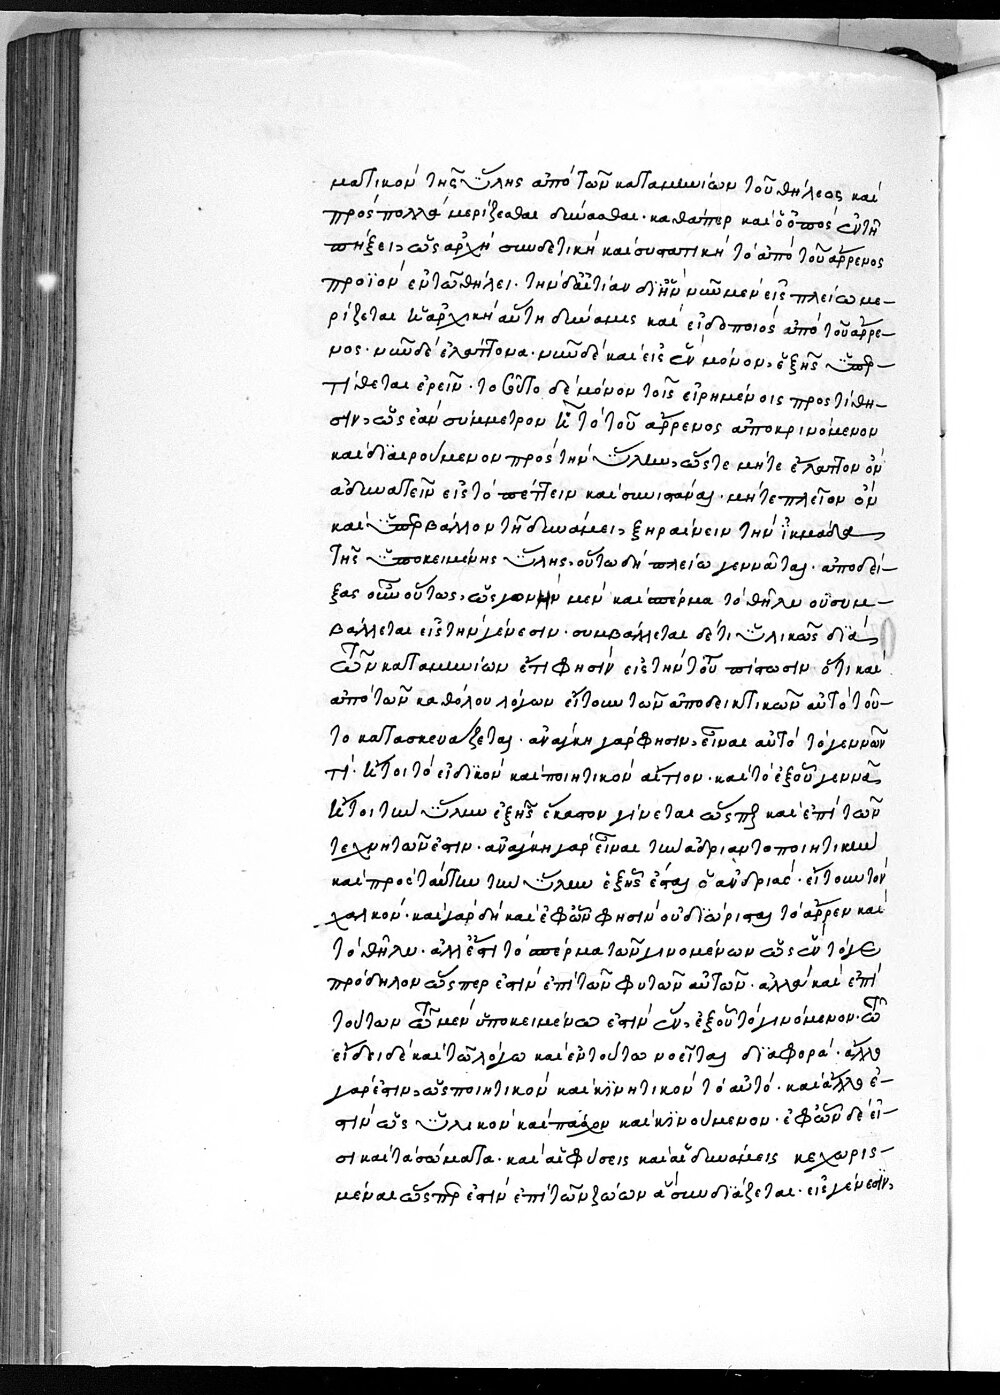 ματικὸν τῆς ὕλης ἀπὸ τῶν καταμηνίων τοῦ θήλεος καὶ
πρὸς πολλὰ μερίζεσθαι δύνασθαι. καθάπερ καὶ ὁ ὀπὸς ἐν τῇ
πήξει, ὡς ἀρχὴ συνδετικὴ καὶ συστατικὴ τὸ ἀπὸ τοῦ ἄρρενος
προϊὸν ἐν τῷ θήλει. τὴν δ' αἰτίαν δι' ἣν νῦν μὲν εἰς πλείω με-
ρίζεται ἡ ἀρχικὴ αὕτη δύναμις καὶ εἰδοποιὸς ἀπὸ τοῦ ἄρρε-
νος. νῦν δὲ ἐλάττονα. νῦν δὲ καὶ εἰς ἓν μόνον, ἑξῆς ὑπερ-
τίθεται ἐρεῖν. τοῦτο δὲ μόνον τοῖς εἰρημένοις προστίθη-
σιν, ὡς ἐὰν σύμμετρον ᾖ τὸ τοῦ ἄρρενος ἀποκρινόμενον
καὶ διαιρούμενον πρὸς τὴν ὕλην, ὥστε μήτε ἔλαττον ὂν
ἀδυνατεῖν εἰς τὸ πέττειν καὶ συνιστάναι. μήτε πλεῖον ὂν
καὶ ὑπερβάλλον τῇ δυνάμει, ξηραίνειν τὴν ἰκμάδα
τῆς ὑποκειμένης ὕλης, οὕτω δὴ πλείω γεννᾶται. ἀποδεί-
ξας οὖν οὕτως, ὡς γονὴν μὲν καὶ σπέρμα τὸ θῆλυ οὐ συμ-
βάλλεται εἰς τὴν γένεσιν. συμβάλλεται δέ τι ὑλικῶς διὰ
τῶν καταμηνίων ἔτι φησὶν εἰς τὴν τοῦ πίστωσιν ὅτι καὶ
ἀπὸ τῶν καθόλου λόγων ἤτουν τῶν ἀποδεικτικῶν αὐτὸ τοῦ-
το κατασκευάζεται. ἀνάγκη γὰρ φησιν, εἶναι αὐτὸ τὸ γεννῶν
τι. ἤτοι τὸ εἰδικὸν καὶ ποιητικὸν αἴτιον. καὶ τὸ ἐξ οὗ γεννᾶ
ἤτοι τὴν ὕλην ἐξ ἧς ἕκαστον γίνεται ὥσπερ καὶ ἐπὶ τῶν
τεχνητῶν ἐστιν. ἀνάγκη γὰρ εἶναι τὴν ἀδριαντοποιητικὴν
καὶ πρὸς ταύτην τὴν ὕλην ἐξ ἧς ἔσται ὁ ἀνδριάς. ἤτουν τὸν
χαλκόν. καὶ γὰρ δὴ καὶ ἐφ' ὧν φησὶν οὐ διώρισται τὸ ἄρρεν καὶ
τὸ θῆλυ. ἀλλ' ἔστι τὸ σπέρμα τῶν γινομένων ὡς ἓν τόγε
πρόδηλον ὥσπερ ἐστὶν ἐπὶ τῶν φυτῶν αὐτῶν. ἀλλὰ καὶ ἐπὶ
τούτων τῷ μὲν ὑποκειμένῳ ἐστὶν ἕν, ἐξ οὗ τὸ γινόμενον. τῷ
εἴδει δὲ καὶ τῷ λόγῳ καὶ ἐν τούτῳ νοεῖται διαφορά. ἄλλο
γάρ ἐστιν, ὡς ποιητικὸν καὶ κινητικὸν τὸ αὐτό. καὶ ἄλλο ἐ-
στὶν ὡς ὑλικὸν καὶ πάσχον καὶ κινούμενον. ἐφ' ὧν δέ εἰ-
σι καὶ τὰ σώματα. καὶ αἱ φύσεις καὶ αἱ δυνάμεις κεχωρισ-
μέναι ὥσπερ ἐστὶν ἐπὶ τῶν ζώων ἃ συνδιάζεται. εἰς γένεσιν,